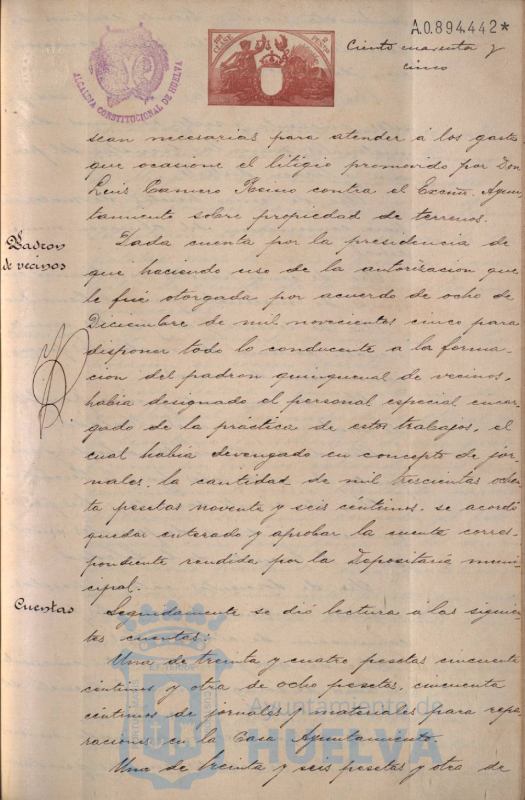 A.0.894.442*
Ciento cuarenta y
cinco
ALCALDIA CONSTITUCIONAL DE HUELVA
sean necesarias para atender á los gastos
que ocasione el litigio promovido por Don
Luis contra el Excmo. Ayun-
tamiento sobre propiedad de terrenos.
Padron
de vecinos
Dada cuenta por la presidencia de
que haciendo uso de la autorizacion que
le fué otorgada por acuerdo de ocho de
Diciembre de mil novecientos cinco para
disponer todo lo conducente á la forma-
cion del padron quinquenal de vecinos,
habia designado el personal especial encar-
gado de la práctica de estos trabajos, el
cual habia devengado en concepto de jor-
nales, la cantidad de mil trescientas ochen-
ta pesetas noventa y seis céntimos, se acordó
quedar enterado y aprobar la cuenta corres-
pondiente rendida por la Depositaría muni-
cipal.
Cuentas
Seguidamente se dió lectura á las siguien-
tes cuentas:
Una de treinta y cuatro pesetas cincuenta
céntimos y otra de ocho pesetas, cincuenta
céntimos de jornales y materiales para repa-
raciones en la Casa Ayuntamiento.
Una de treinta y seis pesetas y otra de
Ayuntamiento de
HUELVA